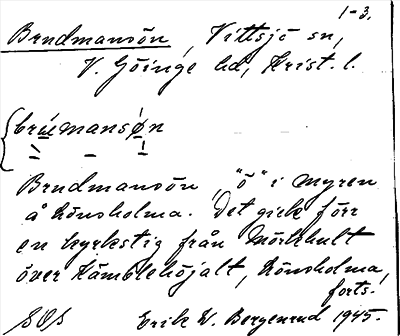 1-3.
Brudmansön, Vittsjö sn,
V. Göinge hd, Krist. l.
bruemansøn
Brudmansön, "ö" i myren
å Hönsholma. Det gick förr
en kyrkstig från Mörkhult
över Kämblehöjalt, Hönsholma,
forts.
SOS Erik W. Bergenrud 1945.